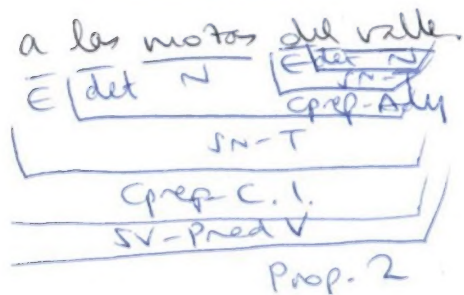 a las mozas del valle.
E det N E det N
SN-T
Cprep-Ady
SN-T
Cprep-C.I.
SV-Pred V
Prop. 2